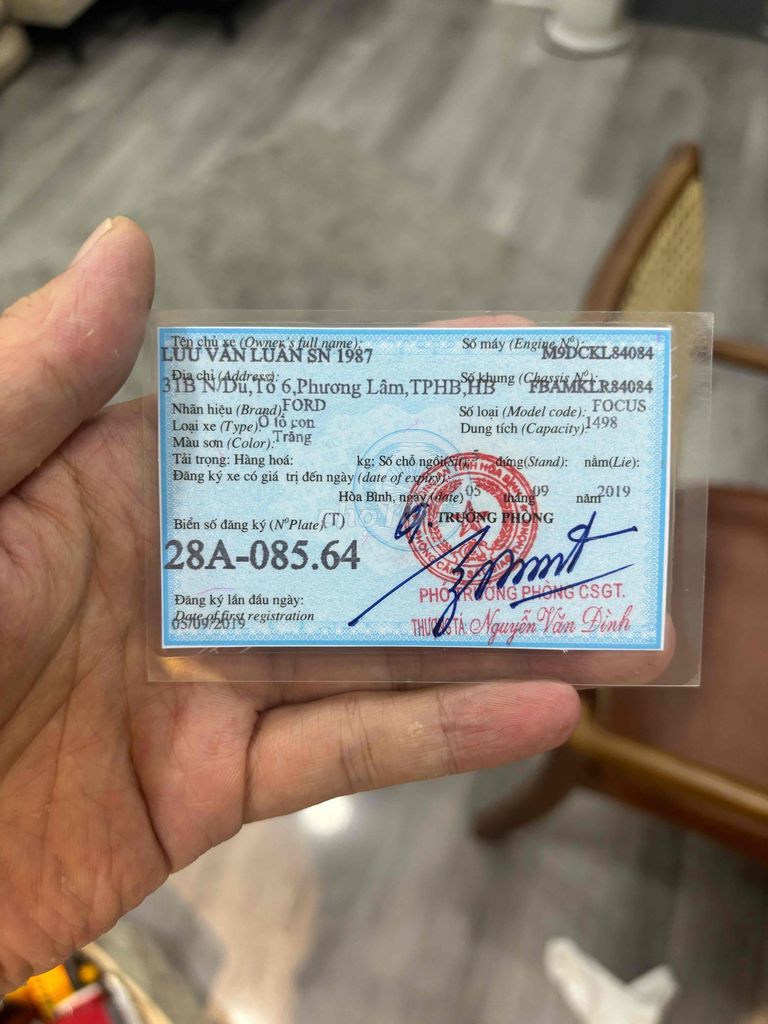 Tên chủ xe (Owner's full name):
LƯU VĂN LUÂN SN 1987
Số máy (Engine Nº):
M9DCKL84084
Địa chỉ (Address):
31B N/Du,Tổ 6,Phương Lâm,TPHB,HB
Số khung (Chassis Nº):
FBAMKLR84084
Nhãn hiệu (Brand) FORD
Số loại (Model code): FOCUS
Loại xe (Type) Ô tô con
Dung tích (Capacity): 1498
Màu sơn (Color): Trắng
Tải trọng: Hàng hoá: kg; Số chỗ ngồi(Sit): đứng(Stand): nằm(Lie):
Đăng ký xe có giá trị đến ngày (date of expiry)
Hòa Bình, ngày (date) 05 tháng 09 năm 2019
Biển số đăng ký (NºPlate) (T)
28A-085.64
TRƯỞNG PHÒNG
PHÓ TRƯỞNG PHÒNG CSGT.
THƯỢNG TÁ: Nguyễn Văn Đình
Đăng ký lần đầu ngày:
Date of first registration
05/09/2019